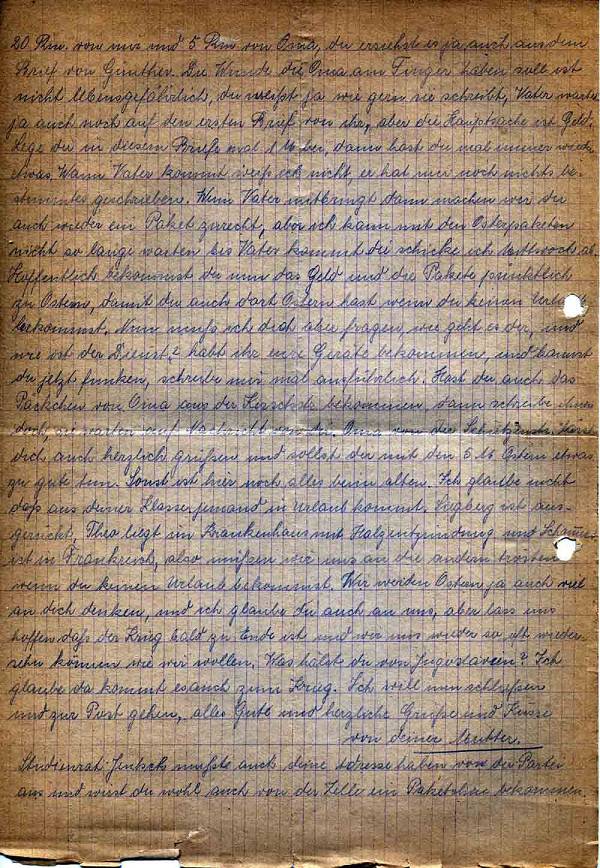 20 Rm. von mir und 5 Rm von Oma, du ersiehst es ja auch aus dem
Brief von Günther. Die Wunde die Oma am Finger haben soll ist
nicht lebensgefährlich, du weißt ja wie gern sie schreibt, Vater wartet
ja auch noch auf den ersten Brief von ihr, aber die Hauptsache ist Geld.
Lege dir in diesem Briefe mal 1 M bei, dann hast du mal immer wieder
etwas. Wann Vater kommt weiß ich nicht, er hat mir noch nichts be-
stimmtes geschrieben. Wenn Vater mitbringt dann machen wir dir
auch wieder ein Paket zurecht, aber ich kann mit den Osterpaketen
nicht so lange warten bis Vater kommt die schicke ich Mittwoch ab.
Hoffentlich bekommst du nun das Geld und die Pakete pünktlich
zu Ostern, damit du auch dort Ostern hast wenn du keinen Urlaub
bekommst. Nun muß ich dich aber fragen, wie geht es dir, und
wie ist der Dienst? habt ihr eure Geräte bekommen, und kannst
du jetzt funken, schreibe mir mal ausführlich. Hast du auch das
Päckchen von Oma aus der bekommen, dann schreibe ihnen
doch, sie warten auf Nachricht von dir. Oma von der Schützenstr. lässt
dich auch herzlich grüßen und sollst dir mit den 5 M Ostern etwas
zu gute tun. Sonst ist hier noch alles beim alten. Ich glaube nicht
daß aus deiner Klasse jemand in Urlaub kommt. Siegberg ist aus-
gerückt, Theo liegt im Krankenhaus mit Halzentzündung und
ist in Frankreich, also müßen wir uns an die andern trösten
wenn du keinen Urlaub bekommst. Wir werden Ostern ja auch viel
an dich denken, und ich glaube du auch an uns, aber lass uns
hoffen daß der Krieg bald zu Ende ist und wir uns wieder so oft wieder
sehn können wie wir wollen. Was hälst du von Jugoslavien? Ich
glaube da kommt es auch zum Krieg. Ich will nun schließen
und zur Post gehen, alles Gute und herzliche Grüße und Küsse
von deiner Mutter.
Studienrat mußte auch deine Adresse haben von der Partei
aus und wirst du wohl auch von der Zelle ein bekommen.